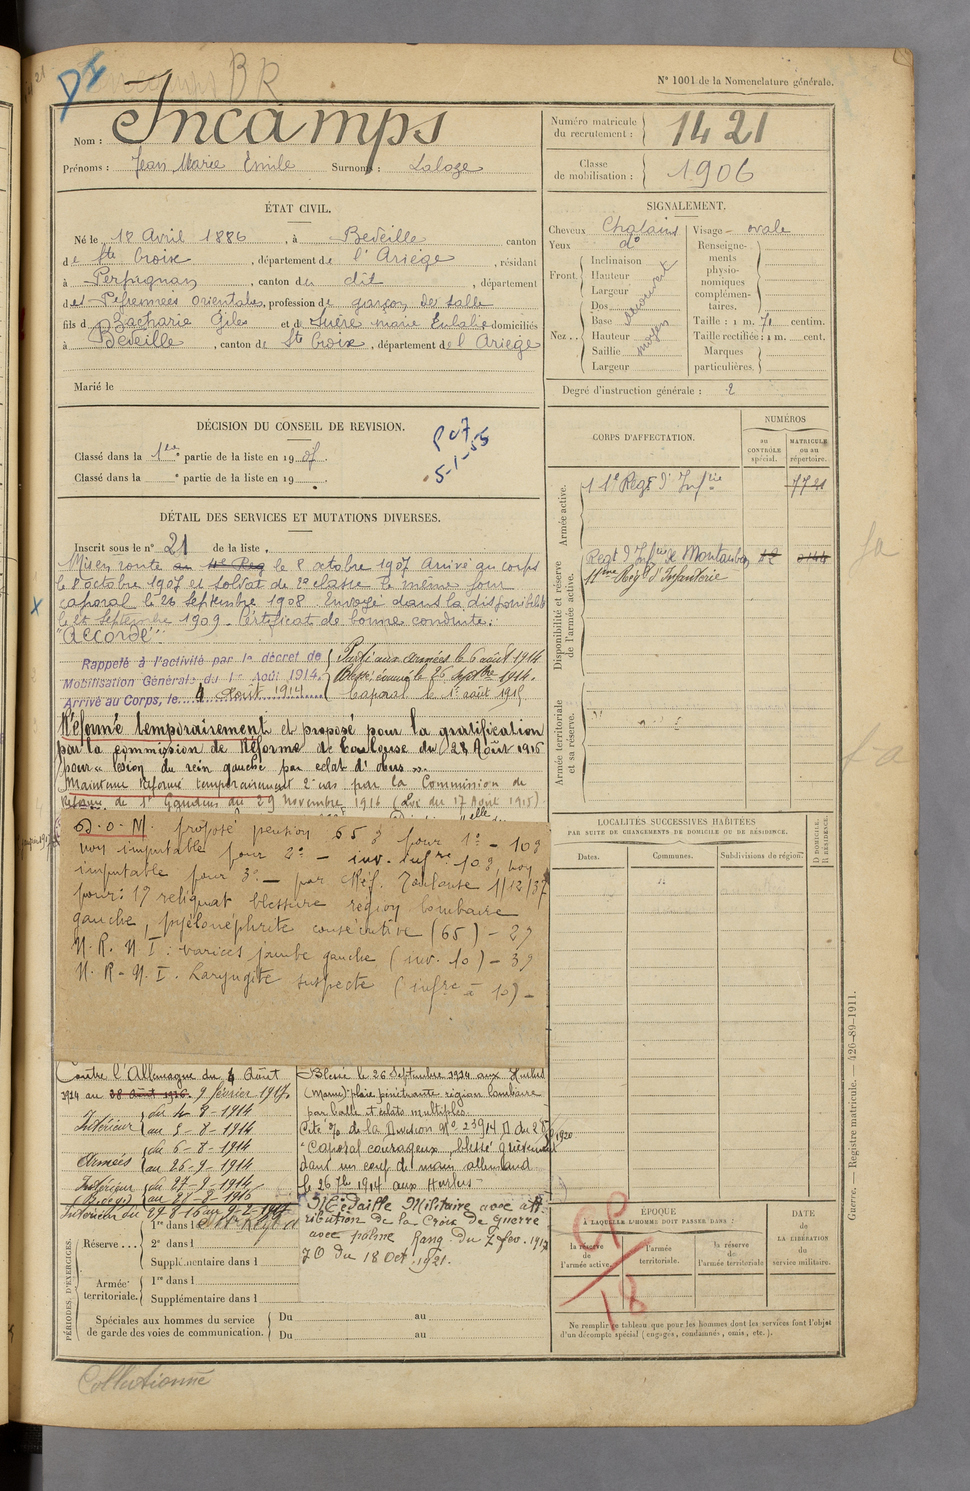 N° 1001 de la Nomenclature générale.
BR
Nom : Incamps
Prénoms : Jean Marie Emile Surnoms : Laloge
Numéro matricule du recrutement : 1421
Classe de mobilisation : 1906
ÉTAT CIVIL.
Né le 18 Avril 1886, à Bedeille canton
de Ste Croix, département de l'Ariège, résidant
à Perpignan, canton de dit, département
des Pyrennées orientales, profession de garçon de salle
fils de Zacharie Giles et de Suère marie Eulalie domiciliés
à Bedeille, canton de Ste Croix, département de l'Ariège
Marié le
SIGNALEMENT.
Cheveux Chatains
Yeux do
Front Inclinaison
Hauteur
Largeur
Nez Dos
Base
Hauteur moyen
Saillie
Largeur
Visage ovale
Renseignements physionomiques complémentaires.
Taille : 1 m. 71 centim.
Taille rectifiée : 1 m. cent.
Marques particulières.
Degré d'instruction générale : 2
DÉCISION DU CONSEIL DE REVISION.
Classé dans la 1re partie de la liste en 1907.
Classé dans la e partie de la liste en 19
5-1-55
DÉTAIL DES SERVICES ET MUTATIONS DIVERSES.
Inscrit sous le n° 21 de la liste
Mis en route au 11e Reg le 8 octobre 1907 Arrivé au corps
le 8 octobre 1907 et soldat de 2e classe le même jour
caporal le 26 Septembre 1908. Envoyé dans la disponibilité
le 25 Septembre 1909. Certificat de bonne conduite :
"Accordé"
Rappelé à l'activité par le décret de
Mobilisation Générale du 1er Août 1914.
Arrivé au Corps, le 4 Août 1914
Parti aux Armées le 6 août 1914
Blessé évacué le 26 septbre 1914.
Caporal le 1er août 1915
Réformé temporairement et proposé pour la gratification
par la commission de Réforme de Toulouse du 28 Août 1916
pour « lésion du rein gauche par éclat d'obus ».
Maintenu Réformé temporairement 2e cas par la Commission de
Réforme de St Gaudens du 29 novembre 1916 (Loi du 17 Août 1915)
D.O.N. proposé pension 65 % pour 1° - 10%
non imputable pour 2° - inv. infre 10%, non
imputable pour 3° - par Réf. Toulouse 1/12/37
pour : 1°) reliquat blessure région lombaire
gauche, pyélonéphrite consécutive (65) - 2°)
N.R.N.I : varices jambe gauche (inv. 10) - 3°)
N.R-N.I. Laryngite suspecte (infre à 10) -
Contre l'Allemagne du 4 Août
1914 au 28 Août 1916. 9 février 1917.
Intérieur du 4-8-1914
au 5-8-1914
Armées du 6-8-1914
au 26-9-1914
Intérieur du 27-9-1914
au 28-8-1916
Intérieur du 29-8-16 au 9-2-1917
Blessé le 26 Septembre 1914 aux Hurlus
(Marne) plaie pénétrante région lombaire
par balle et éclats multiples
Cité % de la Division N° 23914 D du
"Caporal courageux, blessé grièvement
dans un coup de main allemand
le 26 7bre 1914 aux Hurlus"
Médaille Militaire avec attribution de la Croix de Guerre
avec palme Rang du 7 fév. 1917
JO du 18 Oct. 1921.
PÉRIODES D'EXERCICES.
Réserve
1re dans l
2e dans l
Supplémentaire dans l
Armée territoriale.
1re dans l
Supplémentaire dans l
Spéciales aux hommes du service de garde des voies de communication.
Du au
Du au
CORPS D'AFFECTATION.
NUMÉROS
au CONTRÔLE spécial.
MATRICULE ou au répertoire.
Armée active.
11e Regt d'Infrie 7721
Disponibilité et réserve de l'armée active.
Regt d'Infrie de Montauban
11ème Régt d'Infanterie
Armée territoriale et sa réserve.
LOCALITÉS SUCCESSIVES HABITÉES
PAR SUITE DE CHANGEMENTS DE DOMICILE OU DE RÉSIDENCE.
Dates. Communes. Subdivisions de région.
D DOMICILE. R RÉSIDENCE.
ÉPOQUE
À LAQUELLE L'HOMME DOIT PASSER DANS :
la réserve de l'armée active.
l'armée territoriale.
la réserve de l'armée territoriale
DATE de LA LIBÉRATION du service militaire.
CP
18
Ne remplir ce tableau que pour les hommes dont les services font l'objet
d'un décompte spécial (engagés, condamnés, omis, etc.).
Guerre. — Registre matricule. — 426-89-1911.
Collationné